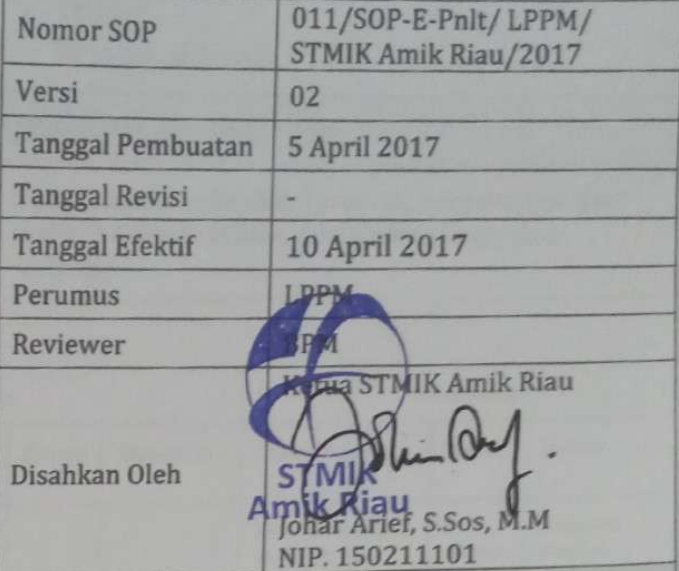 Nomor SOP 011/SOP-E-Pnlt/ LPPM/
STMIK Amik Riau/2017
Versi 02
Tanggal Pembuatan 5 April 2017
Tanggal Revisi -
Tanggal Efektif 10 April 2017
Perumus LPPM
Reviewer BPM
Ketua STMIK Amik Riau
Disahkan Oleh STMIK
Amik Riau
Johar Arief, S.Sos, M.M
NIP. 150211101